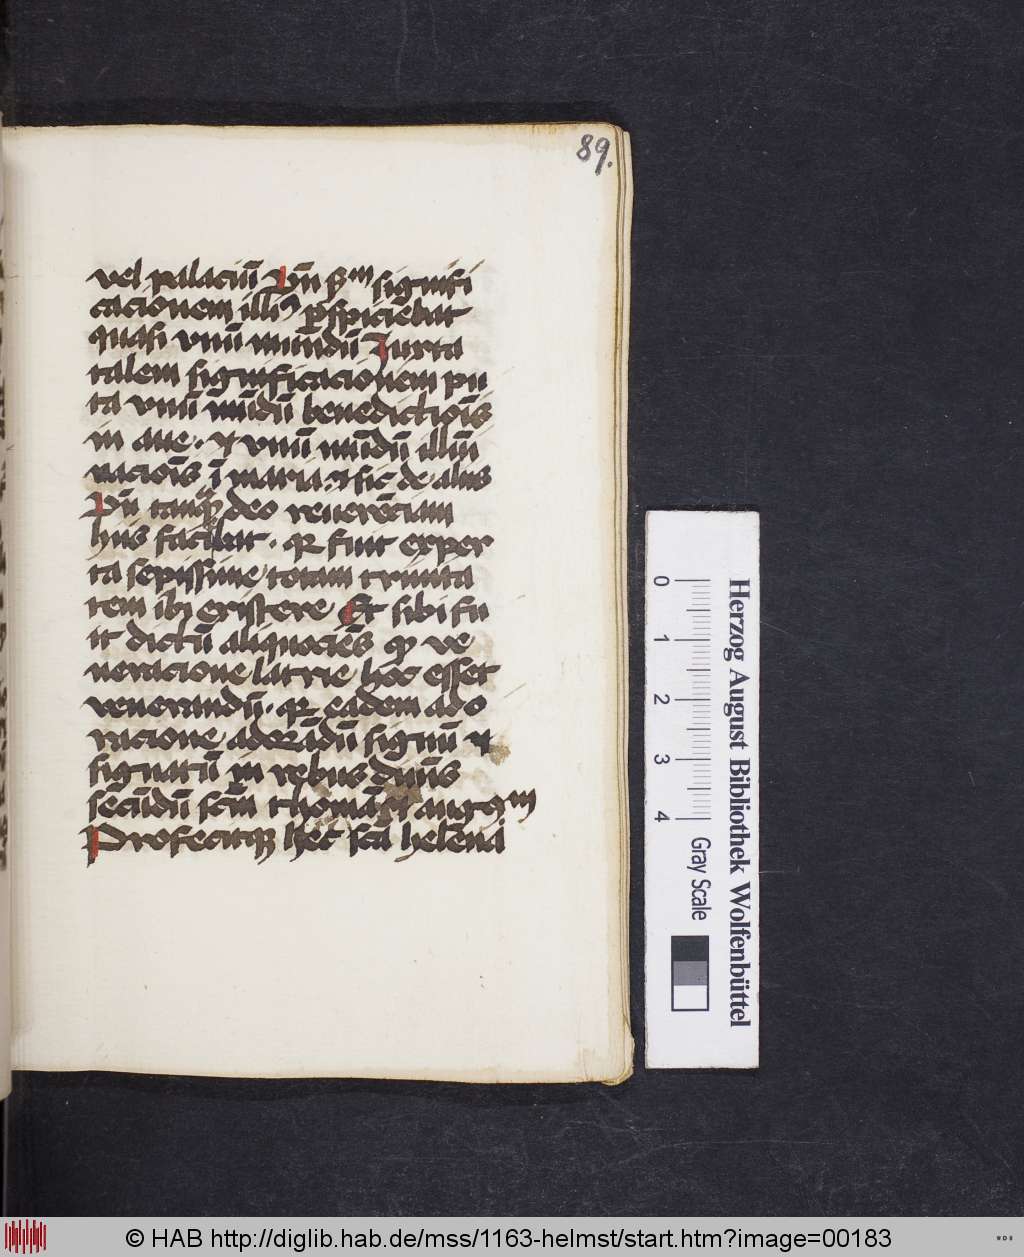 89.
vel palaciū Vn̄ sm signifi
cacionem illi9 ꝑspiciebat
quasi vnū mundū Iuxta
talem significacionem pu
ta vnū mūdū benedictiōis
in aue . ⁊ vnū mūdū illūi
nacōis ī maria . ⁊ sic de aliis
Vn̄ tanqꝫ deo reuerēciam
hiis faciebat . qꝛ fuit exper
ta sepissime totam trinita
tem ibi existere Et sibi fu
it dictū aliquociēs qꝫ ve
neracione latrie hoc esset
venerandū . qꝛ eadem ado
racione adorādū signū ⁊
signatū in rebus diuīs
secūdū scm̄ thomā et augꝰm
Profecitqꝫ hec sca helena
Herzog August Bibliothek Wolfenbüttel
0 1 2 3 4 Gray Scale
© HAB http://diglib.hab.de/mss/1163-helmst/start.htm?image=00183